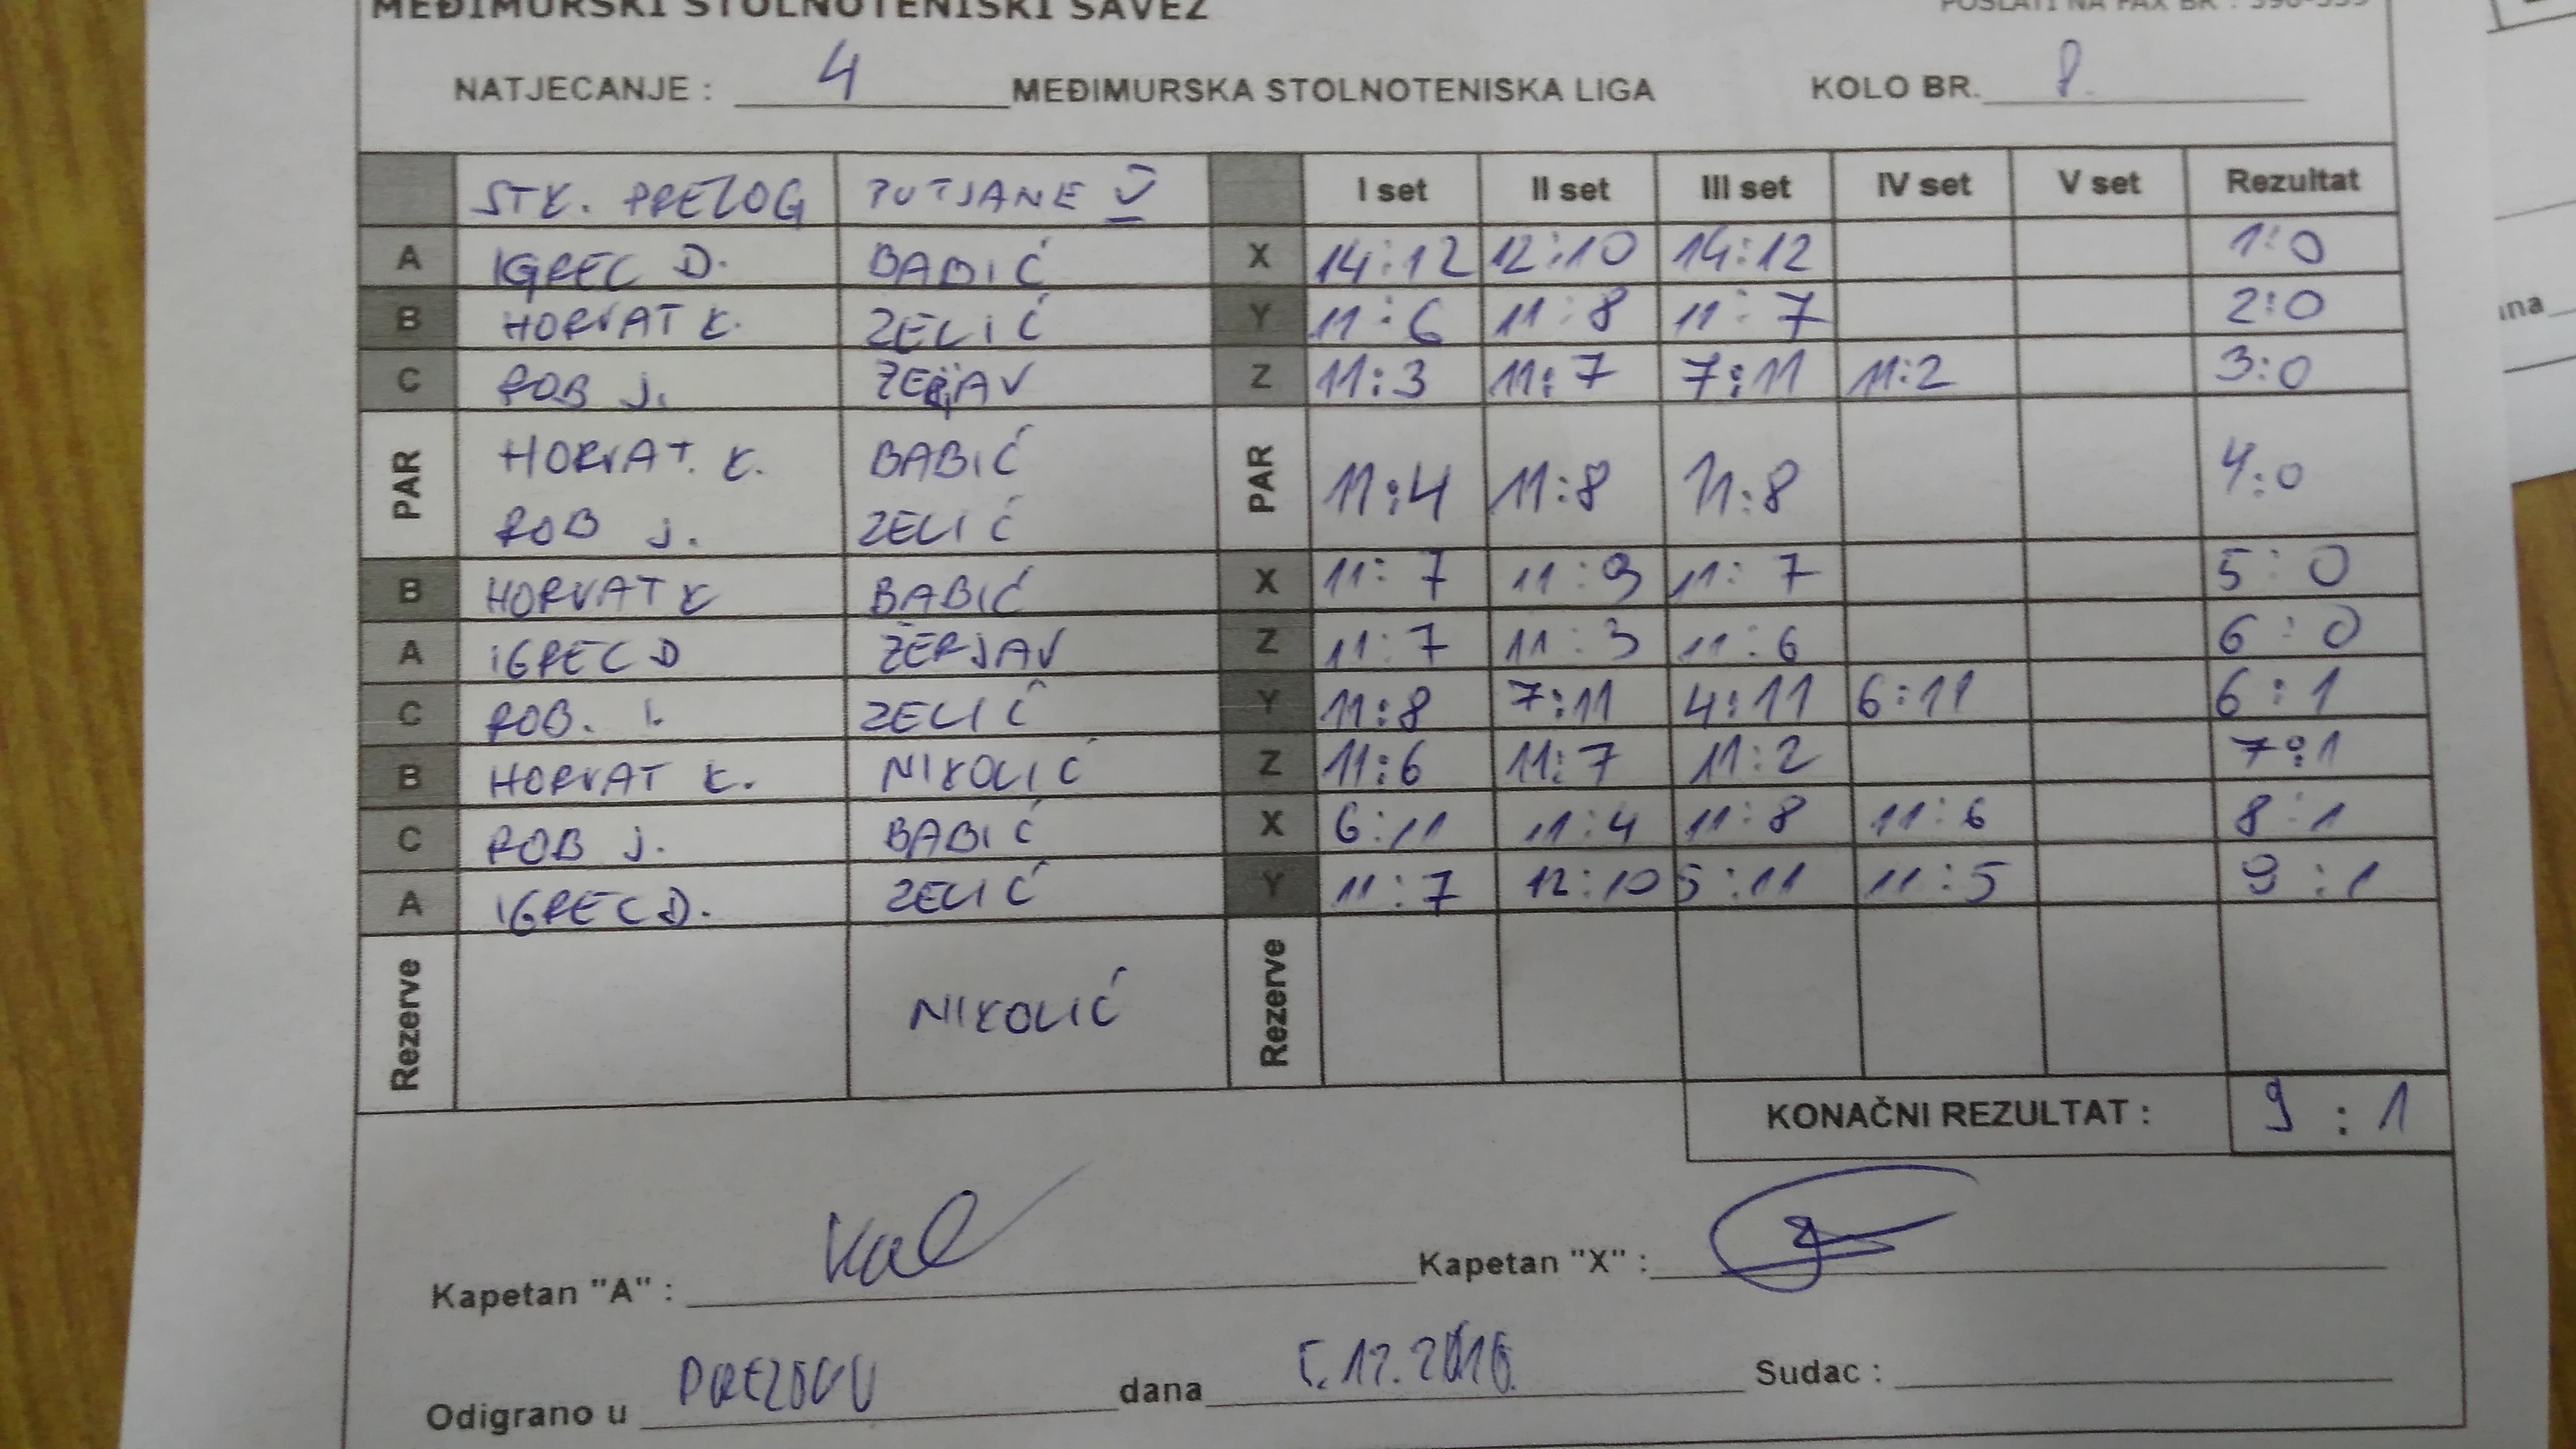 MEĐIMURSKI STOLNOTENISKI SAVEZ POSLATI NA FAX BR : 390-555
NATJECANJE : 4 MEĐIMURSKA STOLNOTENISKA LIGA KOLO BR. 8.
STK. PRELOG PUTJANE V I set II set III set IV set V set Rezultat
A IGREC D. BABIĆ X 14:12 12:10 14:12 1:0
B HORVAT K. ZELIĆ Y 11:6 11:8 11:7 2:0
C ROB J. ŽERJAV Z 11:3 11:7 7:11 11:2 3:0
PAR HORVAT. K. BABIĆ PAR 11:4 11:8 11:8 4:0
ROB J. ZELIĆ
B HORVAT K BABIĆ X 11:7 11:9 11:7 5:0
A IGREC D ŽERJAV Z 11:7 11:3 11:6 6:0
C ROB. J. ZELIĆ Y 11:8 7:11 4:11 6:11 6:1
B HORVAT K. NIKOLIĆ Z 11:6 11:7 11:2 7:1
C ROB J. BABIĆ X 6:11 11:4 11:8 11:6 8:1
A IGREC D. ZELIĆ Y 11:7 12:10 5:11 11:5 9:1
Rezerve NIKOLIĆ Rezerve
KONAČNI REZULTAT : 9:1
Kapetan "A" : Kapetan "X" :
Odigrano u PRELOGU dana 5.12.2016. Sudac :